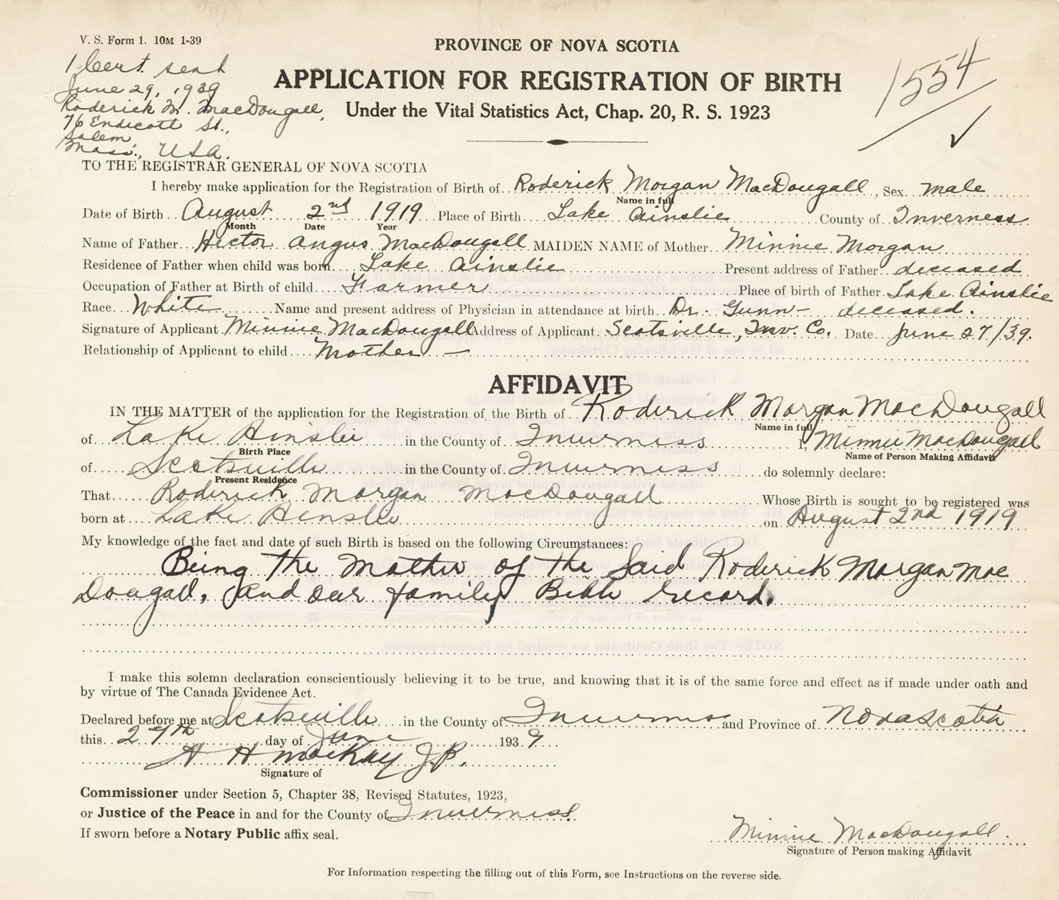 V. S. Form 1. 10M 1-39
1 Cert. sent
June 29, 1939
Roderick M. MacDougall,
76 Endicott St.,
Salem
Mass., USA.
PROVINCE OF NOVA SCOTIA
APPLICATION FOR REGISTRATION OF BIRTH
Under the Vital Statistics Act, Chap. 20, R. S. 1923
1554 ✓
TO THE REGISTRAR GENERAL OF NOVA SCOTIA
I hereby make application for the Registration of Birth of Roderick Morgan MacDougall, Sex male
Name in full
Date of Birth August 2nd 1919 Place of Birth Lake Ainslie County of Inverness
Month Date Year
Name of Father Hector Angus MacDougall MAIDEN NAME of Mother Minnie Morgan
Residence of Father when child was born Lake Ainslie Present address of Father deceased
Occupation of Father at Birth of child Farmer Place of birth of Father Lake Ainslie
Race White Name and present address of Physician in attendance at birth Dr. Gunn - deceased.
Signature of Applicant Minnie MacDougall Address of Applicant Scotsville, Inv. Co. Date June 27/39.
Relationship of Applicant to child Mother -
AFFIDAVIT
IN THE MATTER of the application for the Registration of the Birth of Roderick Morgan MacDougall
Name in full
of Lake Ainslie in the County of Inverness I, Minnie MacDougall
Birth Place Name of Person Making Affidavit
of Scotsville in the County of Inverness do solemnly declare:
Present Residence
That Roderick Morgan MacDougall Whose Birth is sought to be registered was
born at Lake Ainslie on August 2nd 1919
My knowledge of the fact and date of such Birth is based on the following Circumstances:
Being the Mother of the Said Roderick Morgan Mac
Dougall, and our family Bible record.
I make this solemn declaration conscientiously believing it to be true, and knowing that it is of the same force and effect as if made under oath and
by virtue of The Canada Evidence Act.
Declared before me at Scotsville in the County of Inverness and Province of Nova Scotia
this 27th day of June 1939
A H MacKay J.P.
Signature of
Commissioner under Section 5, Chapter 38, Revised Statutes, 1923,
or Justice of the Peace in and for the County of Inverness.
If sworn before a Notary Public affix seal.
Minnie MacDougall.
Signature of Person making Affidavit
For Information respecting the filling out of this Form, see Instructions on the reverse side.